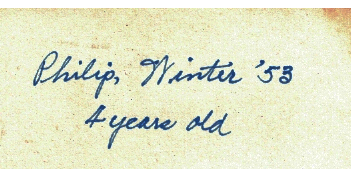 Philip, Winter '53
4 years old